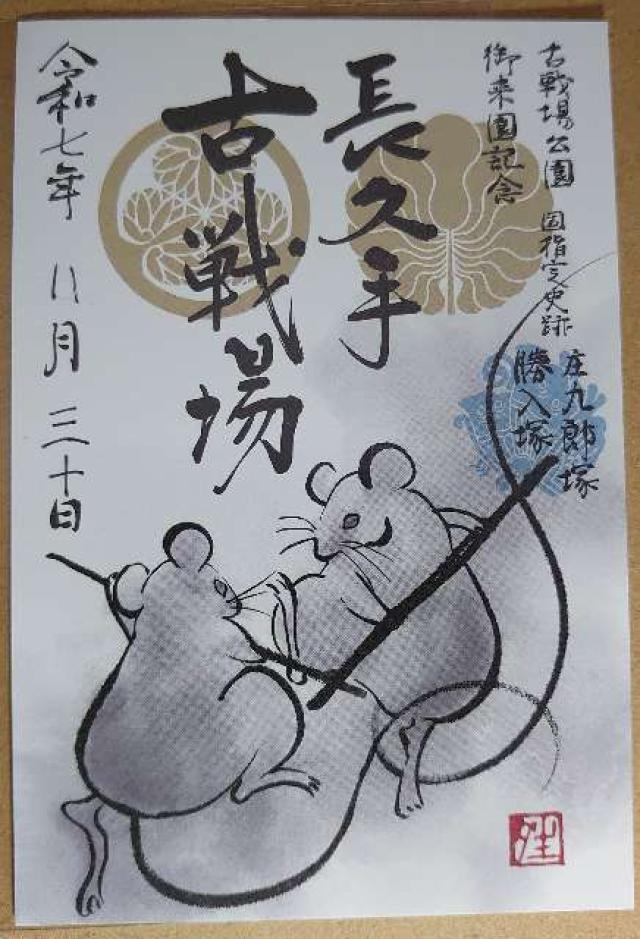 古戦場公園 国指定史跡
御来園記念
庄九郎塚
勝入塚
長久手
古戦場
令和七年 八月 三十日